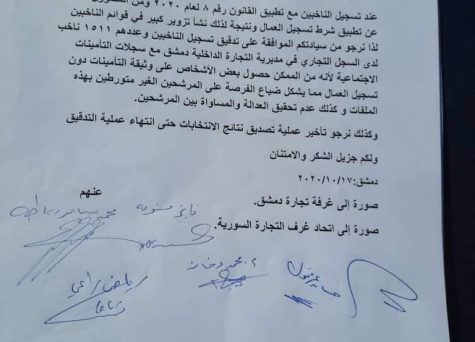 عند تسجيل الناخبين مع تطبيق القانون رقم ٨ لعام ٢٠٢٠ ومن
عن تطبيق شرط تسجيل العمال ونتيجة لذلك نشأ تزوير كبير في قوائم الناخبين
لذا نرجو من سيادتكم الموافقة على تدقيق تسجيل الناخبين وعددهم ١٥١١ ناخب
لدى السجل التجاري في مديرية التجارة الداخلية دمشق مع سجلات التأمينات
الاجتماعية لأنه من الممكن حصول بعض الأشخاص على وثيقة التأمينات دون
تسجيل العمال مما يشكل ضياع الفرصة على المرشحين الغير متورطين بهذه
الملفات و كذلك عدم تحقيق العدالة والمساواة بين المرشحين.
وكذلك نرجو تأخير عملية تصديق نتائج الانتخابات حتى انتهاء عملية التدقيق
ولكم جزيل الشكر والامتنان
دمشق:٢٠٢٠/١٠/١٧
عنهم
صورة إلى غرفة تجارة دمشق.
صورة إلى اتحاد غرف التجارة السورية.